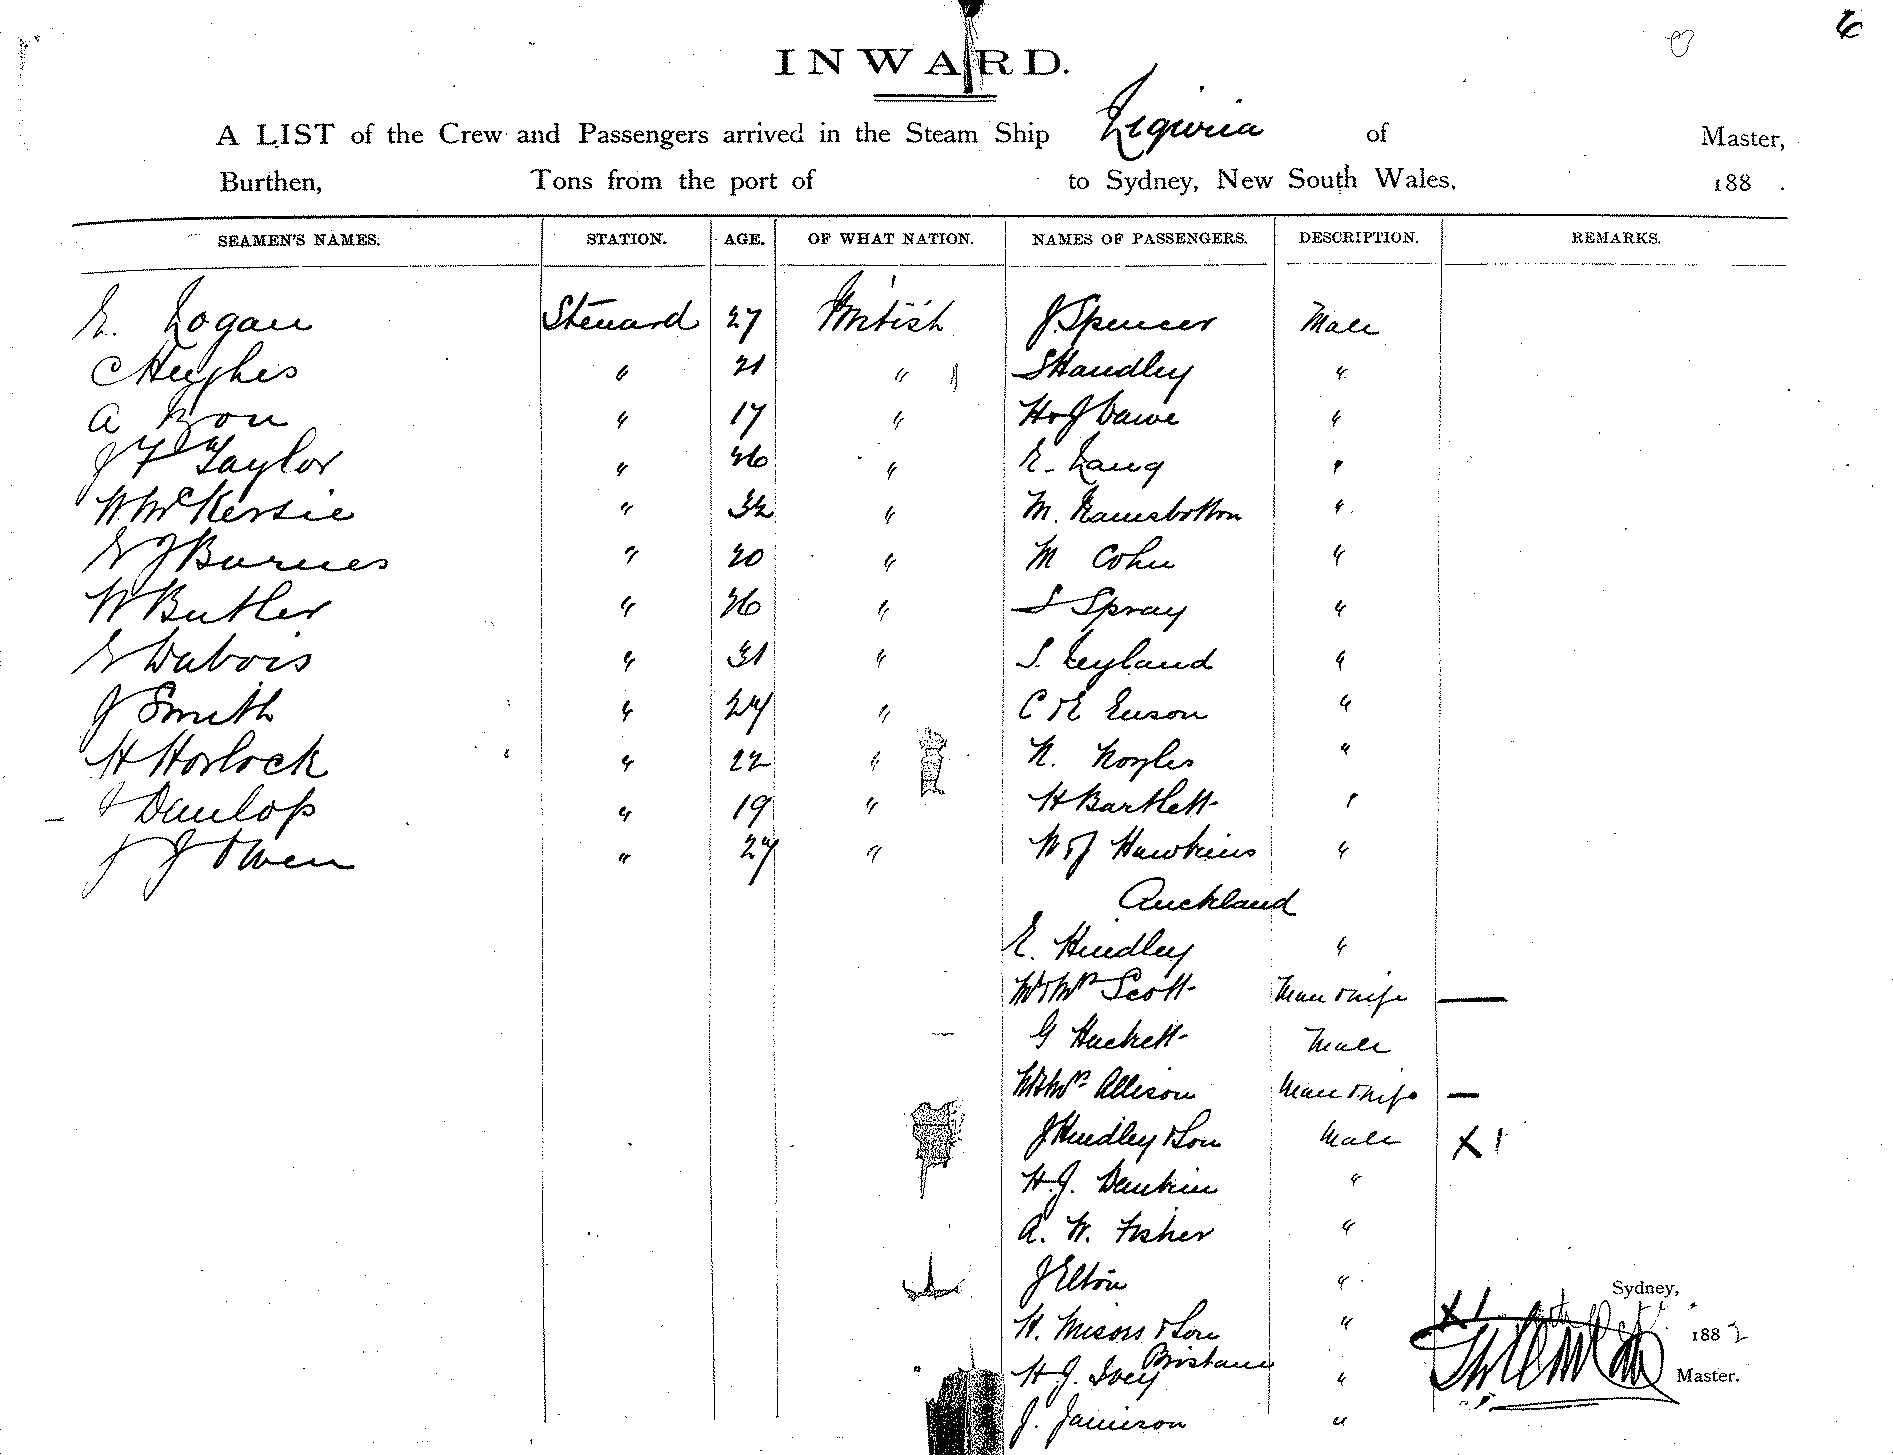 INWARD.
A LIST of the Crew and Passengers arrived in the Steam Ship Liguria of Master,
Burthen, Tons from the port of to Sydney, New South Wales, 188 .
SEAMEN'S NAMES. STATION. AGE. OF WHAT NATION. NAMES OF PASSENGERS. DESCRIPTION. REMARKS.
E. Logan Steward 27 British J. Spencer Male
C Hughes " 21 " S Handley "
A " 17 " H & J Dawe "
J F Taylor " 26 " E. Lang "
W McKersie " 32 " M. Ramsbottom "
E J Burnes " 20 " M Cohn "
W Butler " 26 " S Spray "
E Dubois " 31 " S. Leyland "
J Smith " 24 " C & E Euson "
H Horlock " 22 " N. Noyles "
J Dunlop " 19 " H Bartlett "
J J Owen " 27 " W & J Hawkins "
Auckland
E. Hindley "
Mr & Mrs Scott Man & Wife —
G Hackett Male
Mr & Mrs Allison Man & Wife —
J Hindley & Son Male X 1
H. J. "
A. W. Fisher "
J Elton "
Sydney,
W. & Son " X1 1882
Brisbane
H. J. Ivey " Master.
J. Jamieson "